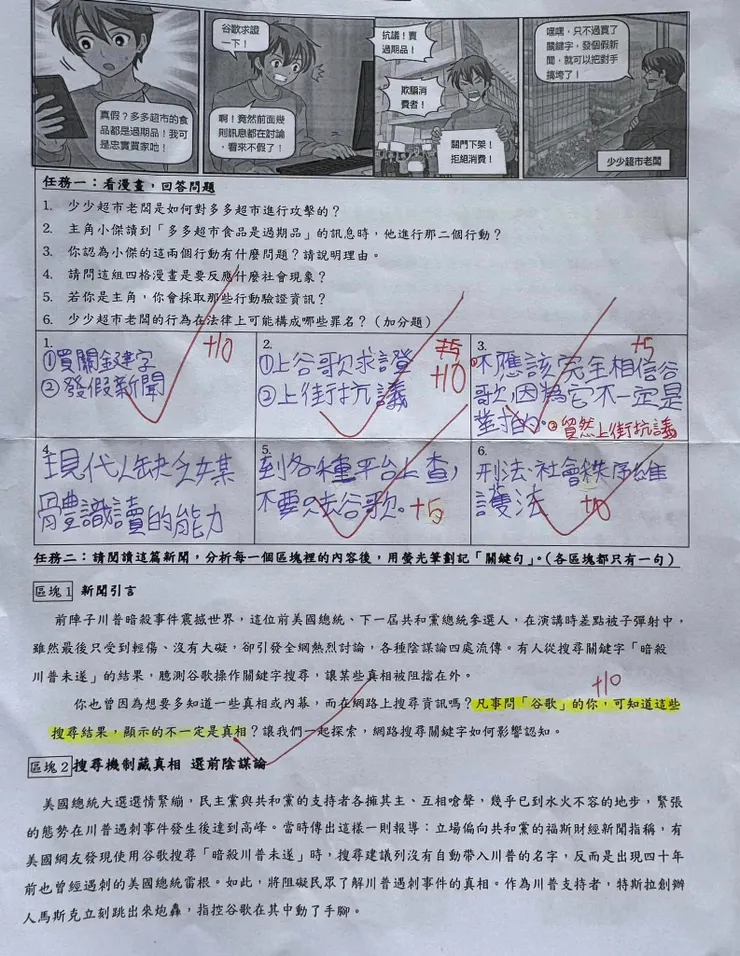 真假?多多超市的食
品都是過期品!我可
是忠實買家吔!
谷歌求證
一下!
啊!竟然前面幾
則訊息都在討論
,看來不假了!
抗議!賣
過期品!
欺騙消
費者!
關門下架!
拒絕消費!
嘿嘿,只不過買了
關鍵字,發個假新
聞,就可以把對手
搞垮了!
少少超市老闆
任務一:看漫畫,回答問題
1. 少少超市老闆是如何對多多超市進行攻擊的?
2. 主角小傑讀到「多多超市食品是過期品」的訊息時,他進行那二個行動?
3. 你認為小傑的這兩個行動有什麼問題?請說明理由。
4. 請問這組四格漫畫是要反應什麼社會現象?
5. 若你是主角,你會採取那些行動驗證資訊?
6. 少少超市老闆的行為在法律上可能構成哪些罪名?(加分題)
1.
①買關鍵字
②發假新聞
+10
2.
①上谷歌求證
②上街抗議
+10
3.
+5
①不應該完全相信谷
歌,因為它不一定是
對的。②貿然上街抗議
4.
現代人缺乏媒
體識讀的能力
5.
到各種平台上查,
不要只去谷歌。+5
6.
刑法、社會秩序維
護法 +10
任務二:請閱讀這篇新聞,分析每一個區塊裡的內容後,用螢光筆劃記「關鍵句」。(各區塊都只有一句)
區塊1 新聞引言
前陣子川普暗殺事件震撼世界,這位前美國總統、下一屆共和黨總統參選人,在演講時差點被子彈射中,
雖然最後只受到輕傷、沒有大礙,卻引發全網熱烈討論,各種陰謀論四處流傳。有人從搜尋關鍵字「暗殺
川普未遂」的結果,臆測谷歌操作關鍵字搜尋,讓某些真相被阻擋在外。
+10
你也曾因為想要多知道一些真相或內幕,而在網路上搜尋資訊嗎?凡事問「谷歌」的你,可知道這些
搜尋結果,顯示的不一定是真相?讓我們一起探索,網路搜尋關鍵字如何影響認知。
區塊2 搜尋機制藏真相 選前陰謀論
美國總統大選選情緊繃,民主黨與共和黨的支持者各擁其主、互相嗆聲,幾乎已到水火不容的地步,緊張
的態勢在川普遇刺事件發生後達到高峰。當時傳出這樣一則報導:立場偏向共和黨的福斯財經新聞指稱,有
美國網友發現使用谷歌搜尋「暗殺川普未遂」時,搜尋建議列沒有自動帶入川普的名字,反而是出現四十年
前也曾經遇刺的美國總統雷根。如此,將阻礙民眾了解川普遇刺事件的真相。作為川普支持者,特斯拉創辦
人馬斯克立刻跳出來炮轟,指控谷歌在其中動了手腳。